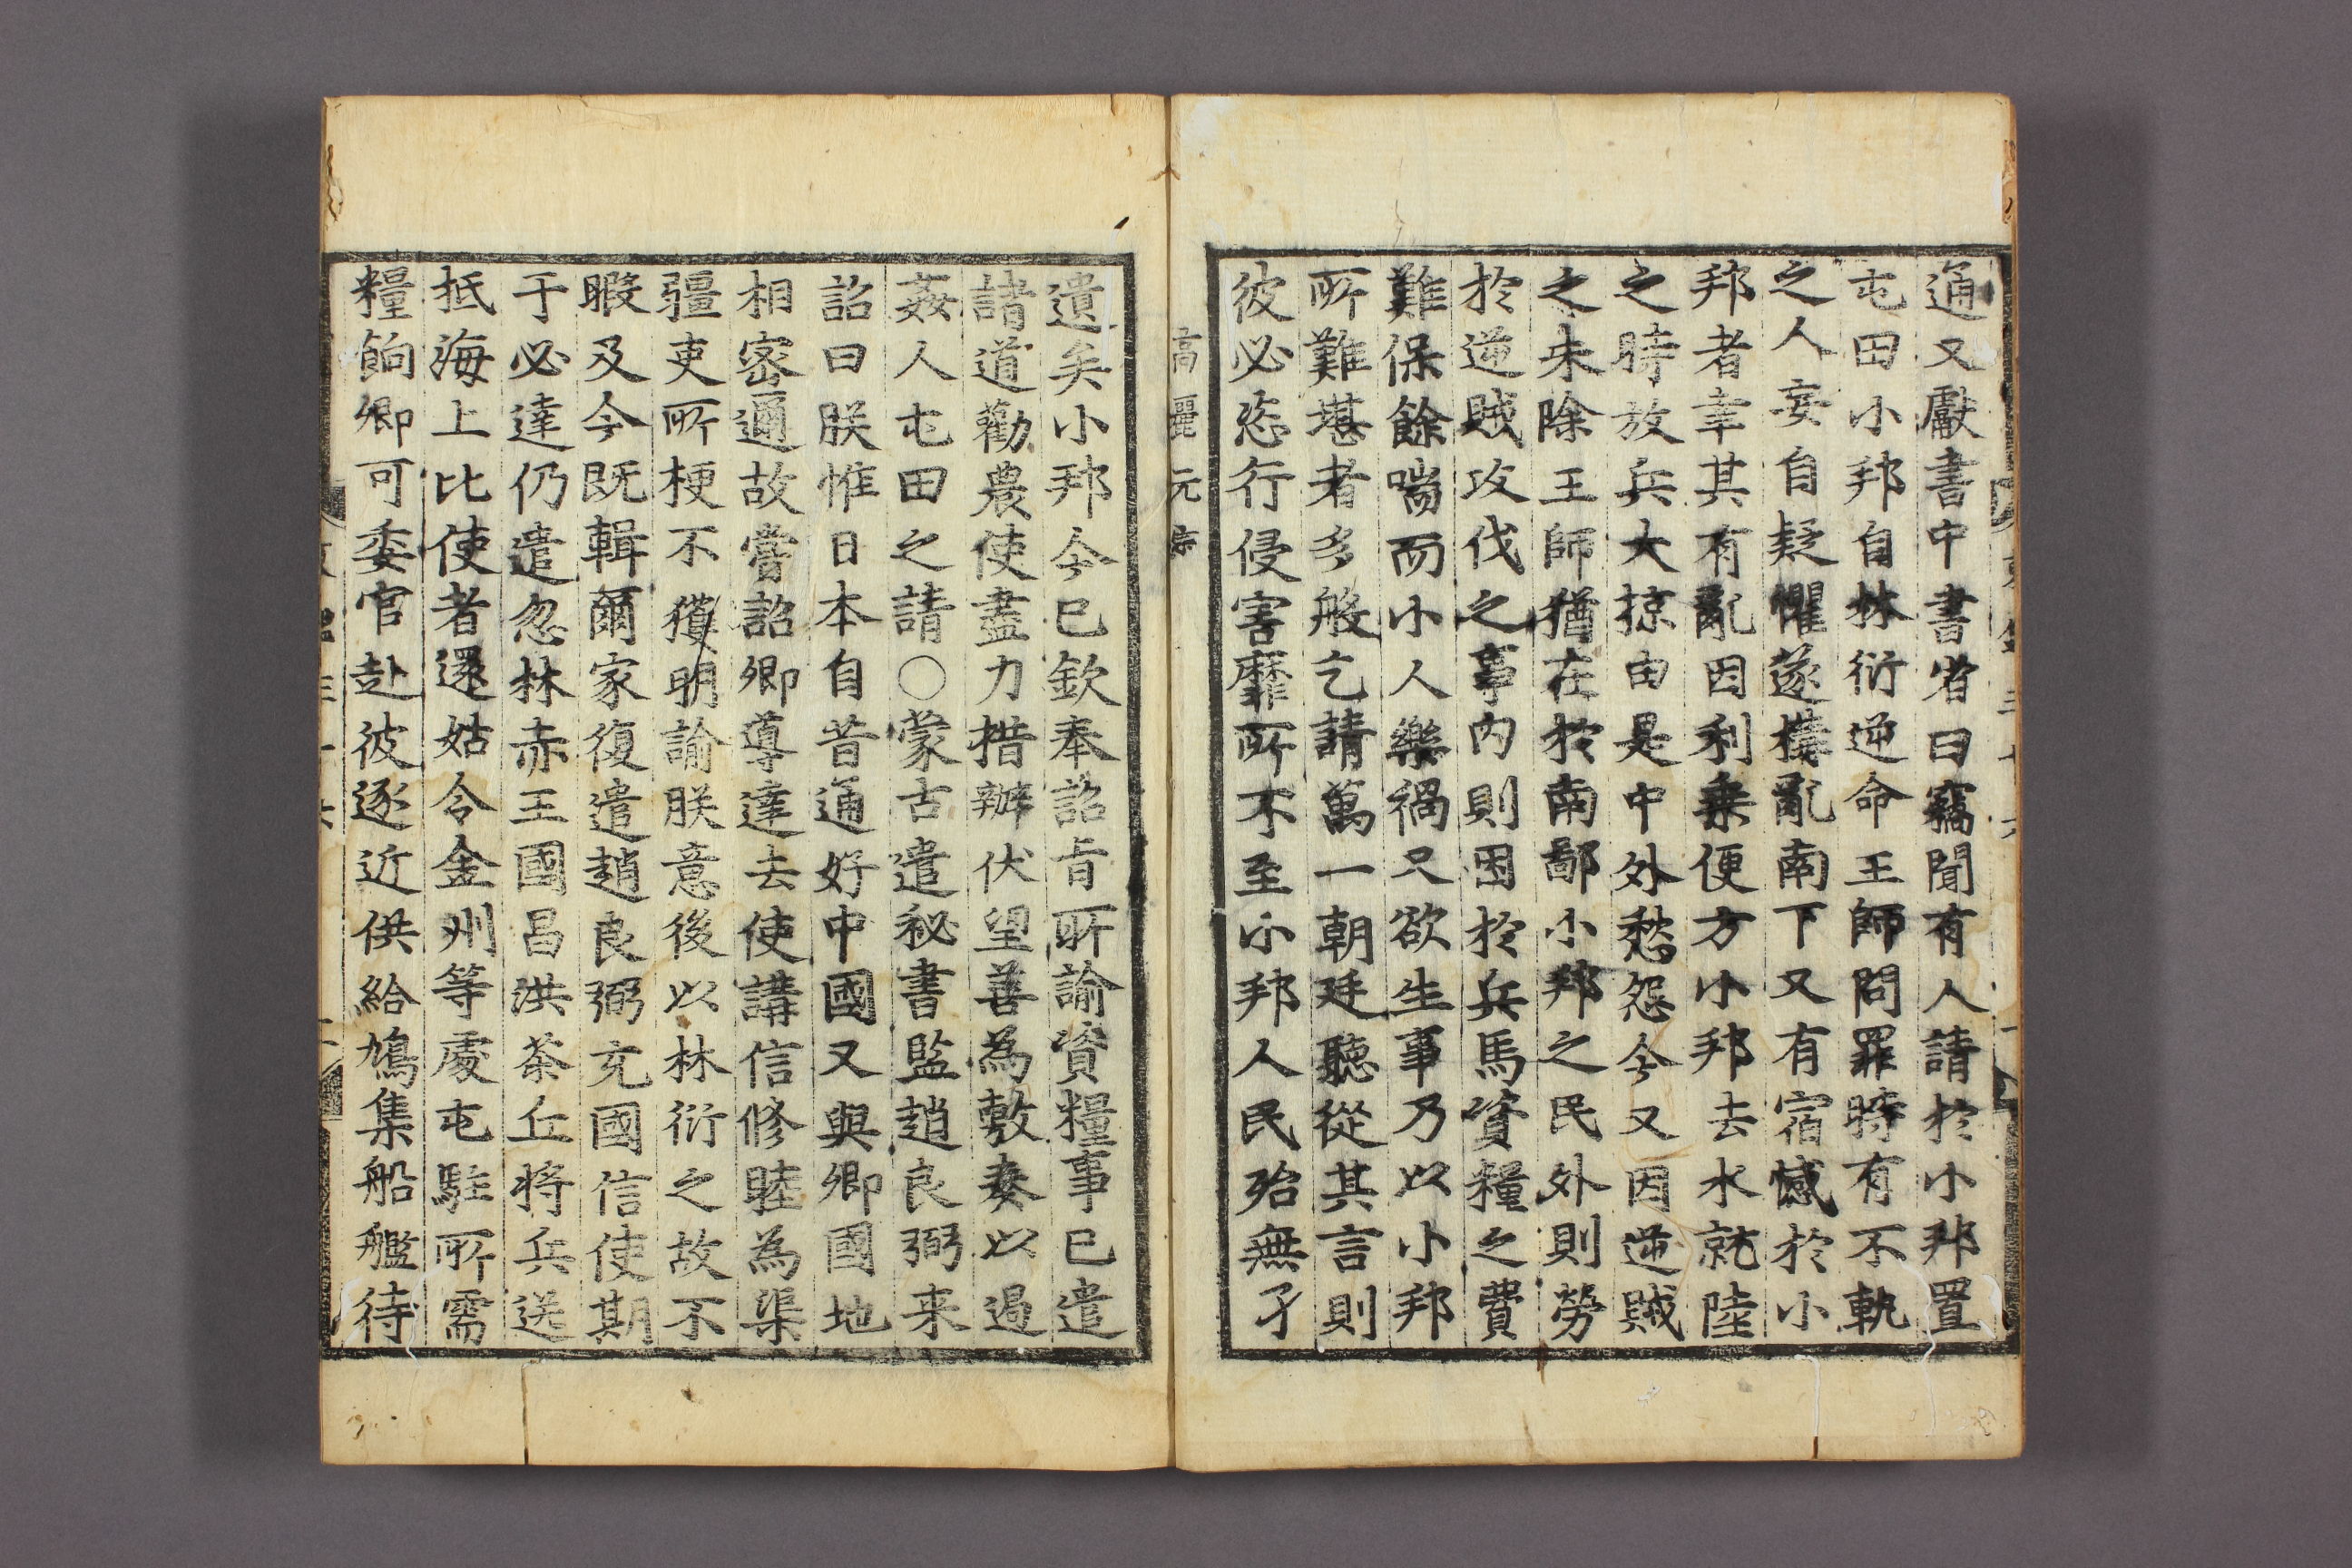 通又獻書中書省曰竊聞有人請於小邦置
屯田小邦自林衍逆命王師問罪時有不軌
之人妄自疑懼遂構亂南下又有宿憾於小
邦者幸其有亂因利乗便方小邦去水就陸
之時放兵大掠由是中外愁怨今又因逆賊
之未除王師猶在於南鄙小邦之民外則勞
於逆賊攻伐之事內則困於兵馬資糧之費
難保餘喘而小人樂禍只欲生事乃以小邦
所難堪者多般乞請萬一朝廷聽從其言則
彼必恣行侵害靡所不至小邦人民殆無孑
高麗元宗
遺矣小邦今已欽奉詔旨所諭資糧事已遣
諸道勸農使盡力措辦伏望善為敷奏以遏
姦人屯田之請○蒙古遣秘書監趙良弼来
詔曰朕惟日本自昔通好中國又與卿國地
相密邇故嘗詔卿導達去使講信修睦為渠
疆吏所梗不獲明諭朕意後以林衍之故不
暇及今既輯爾家復遣趙良弼充國信使期
于必達仍遣忽林赤王國昌洪茶丘將兵送
抵海上比使者還姑令金州等處屯駐所需
糧餉卿可委官赴彼逐近供給鳩集船艦待